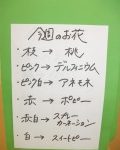 今週のお花
枝 → 桃
ピンク → デルフィニウム
ピンク白 → アネモネ
赤 → ポピー
赤白 → スプレーカーネーション
白 → スイートピー